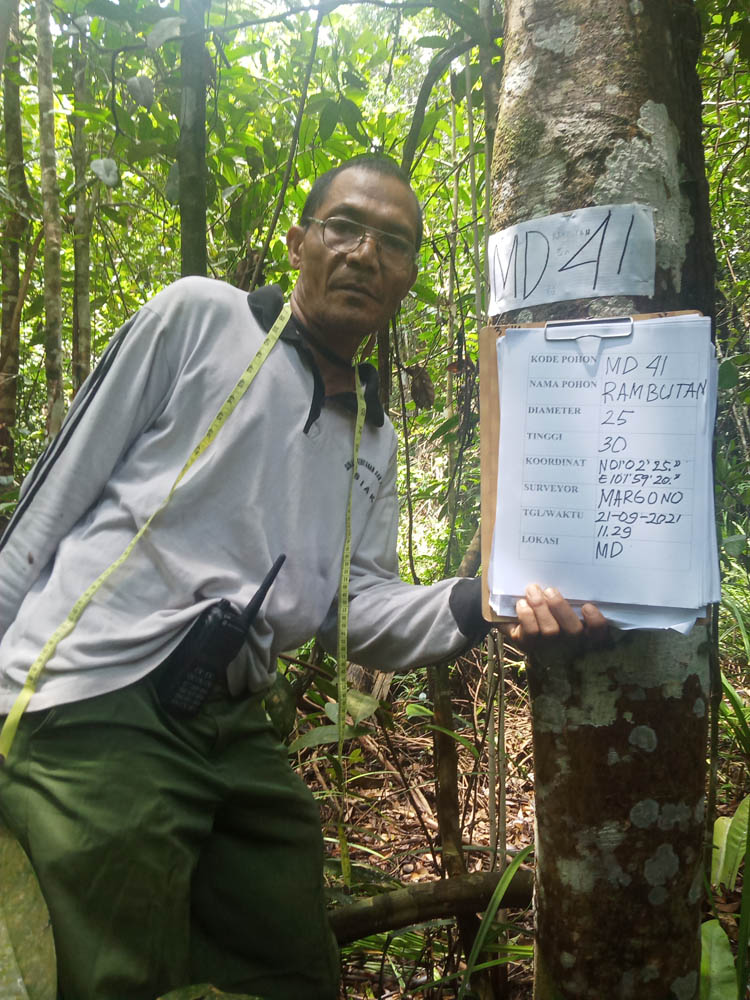 MD 41
KODE POHON MD 41
NAMA POHON RAMBUTAN
DIAMETER 25
TINGGI 30
KOORDINAT N01°02'25."
E101°59'20."
SURVEYOR MARGONO
TGL/WAKTU 21-09-2021
11.29
LOKASI MD
SIAK